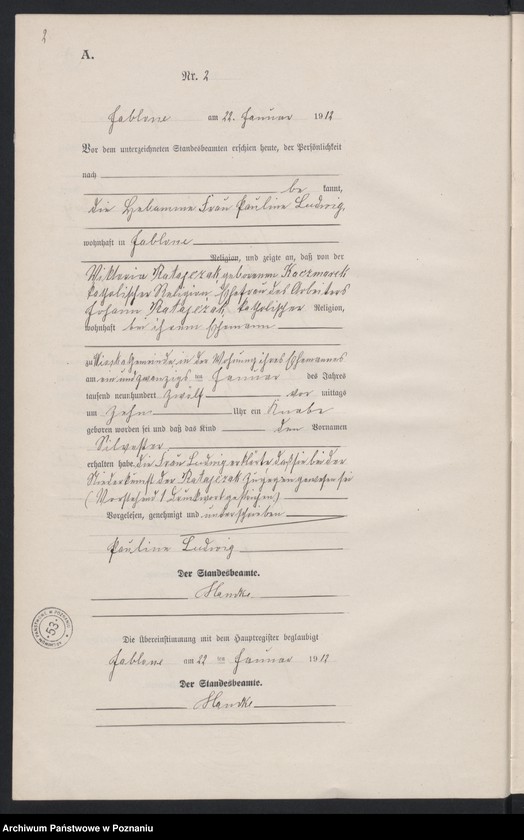 2
A.
Nr. 2
Jablone am 22. Januar 1912
Vor dem unterzeichneten Standesbeamten erschien heute, der Persönlichkeit
nach
be kannt,
die Hebamme Frau Pauline Ludwig,
wohnhaft in Jablone
Religion, und zeigte an, daß von der
Wiktoria Ratajczak geborenen Kaczmarek
katholischer Religion Ehefrau des Arbeiters
Johann Ratajczak katholischer Religion,
wohnhaft bei ihrem Ehemann
zu Gemeinde, in der Wohnung ihres Ehemannes
am ein und zwanzigs ten Januar des Jahres
tausend neunhundert zwölf vor mittags
um Zehn Uhr ein Knabe
geboren worden sei und daß das Kind den Vornamen
Silvester
erhalten habe. die Frau Ludwig erklärte daß sie bei der
Niederkunft der Ratajczak zugegen gewesen sei
(Vorstehend 1 Druckwort gestrichen)
Vorgelesen, genehmigt und unterschrieben
Pauline Ludwig
Der Standesbeamte.
Handke
Die Übereinstimmung mit dem Hauptregister beglaubigt
Jablone am 22 ten Januar 1912
Der Standesbeamte.
Handke
53
Archiwum Państwowe w Poznaniu